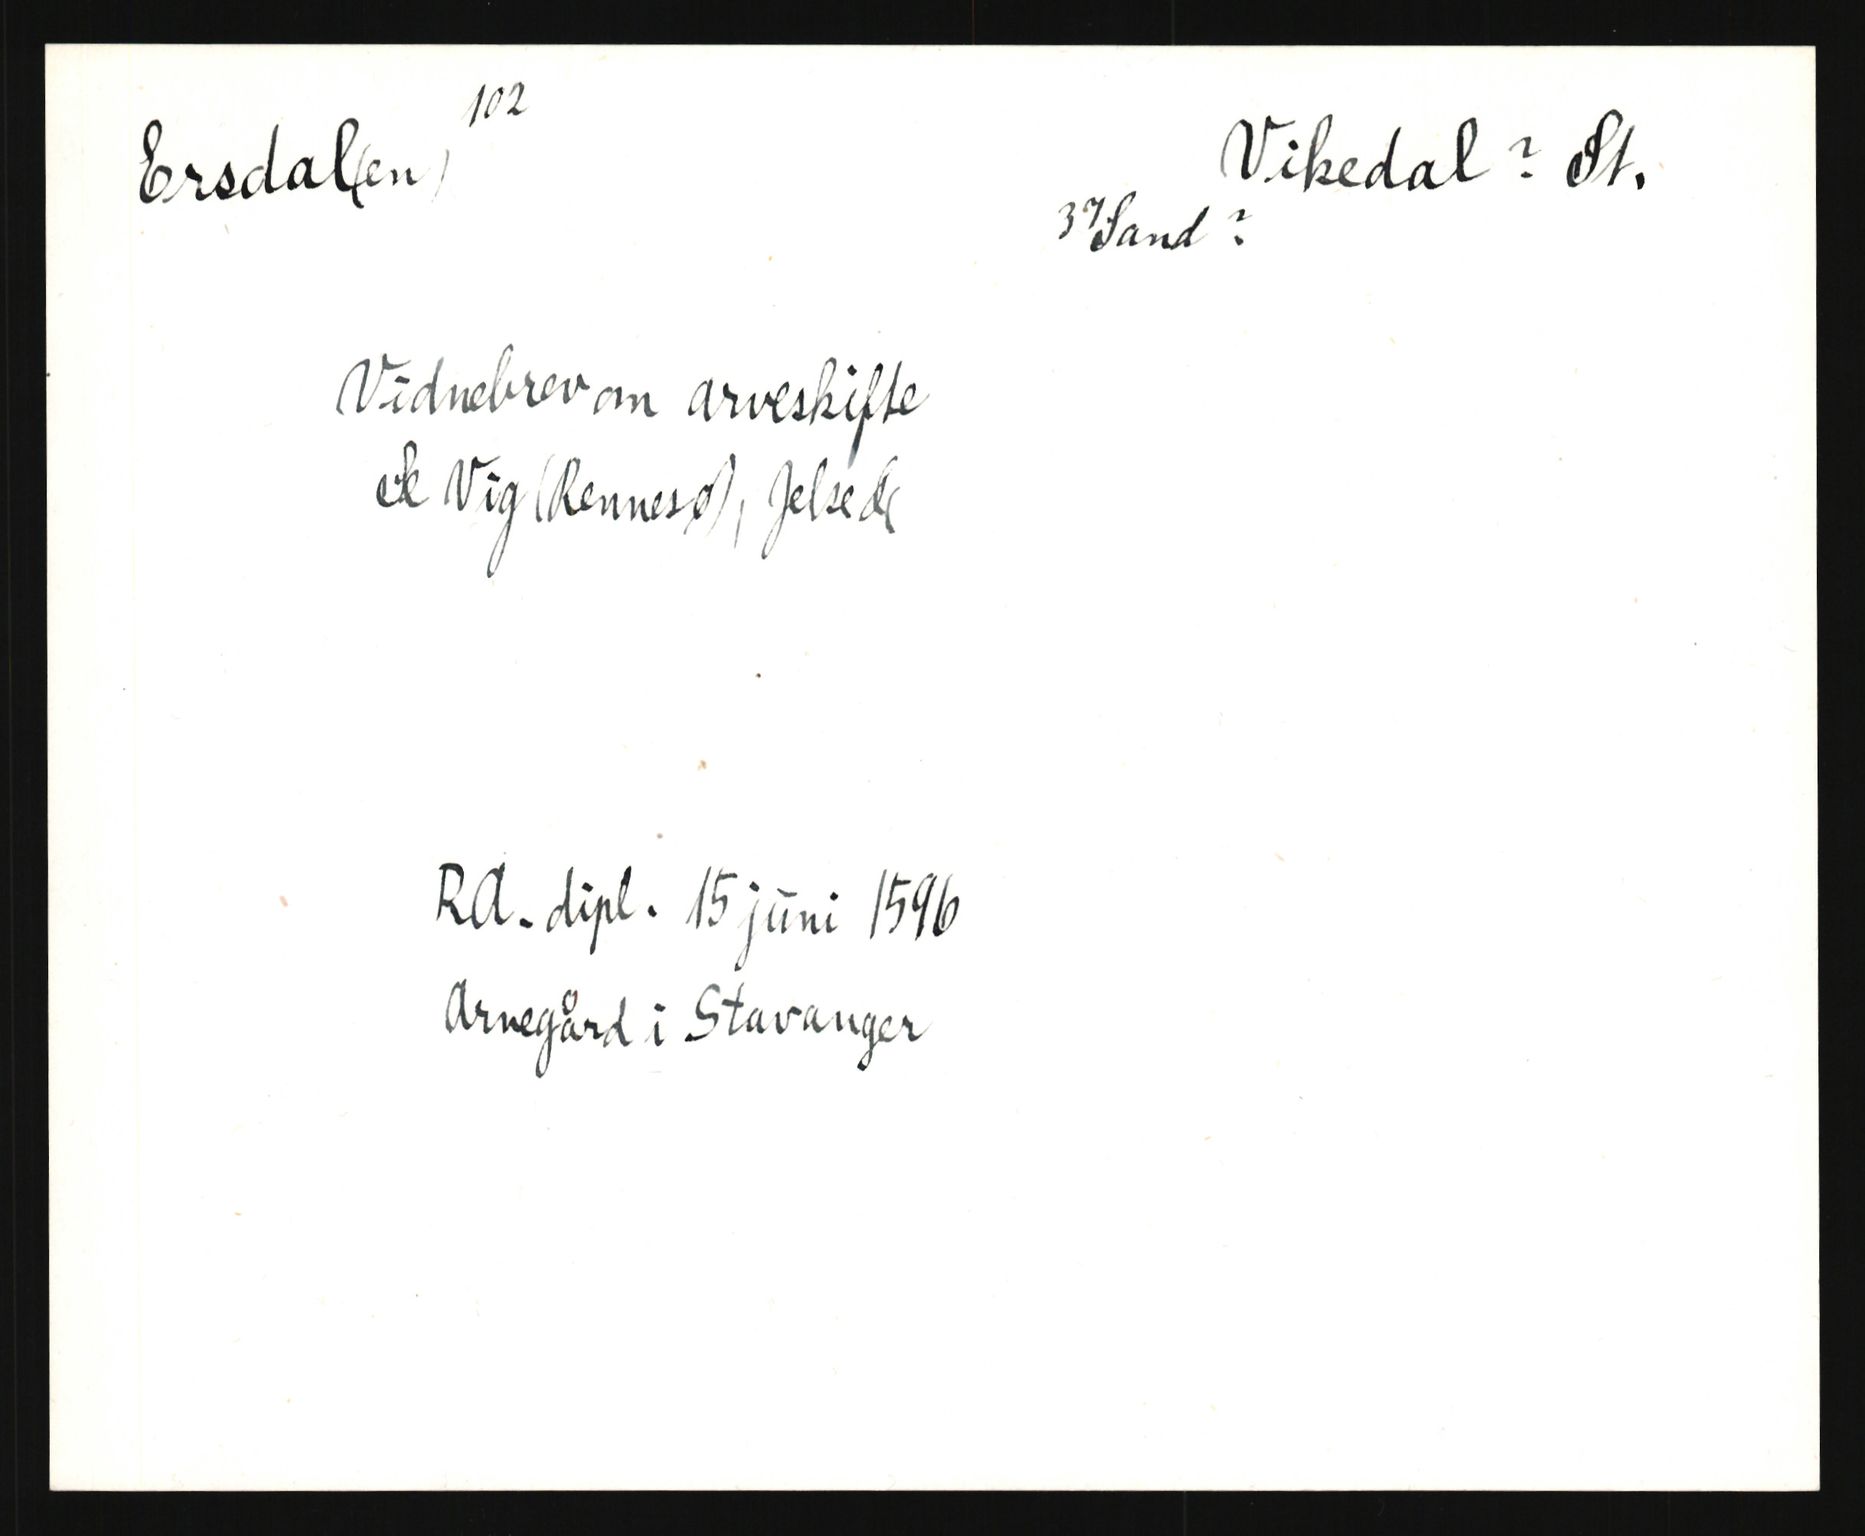 Ersdal(en) 102
Vikedal ? St.
37 Sand ?
Vidnebrev om arveskifte
Vig (Rennesø), Jelse
RA. dipl. 15 juni 1596
Arnegård i Stavanger